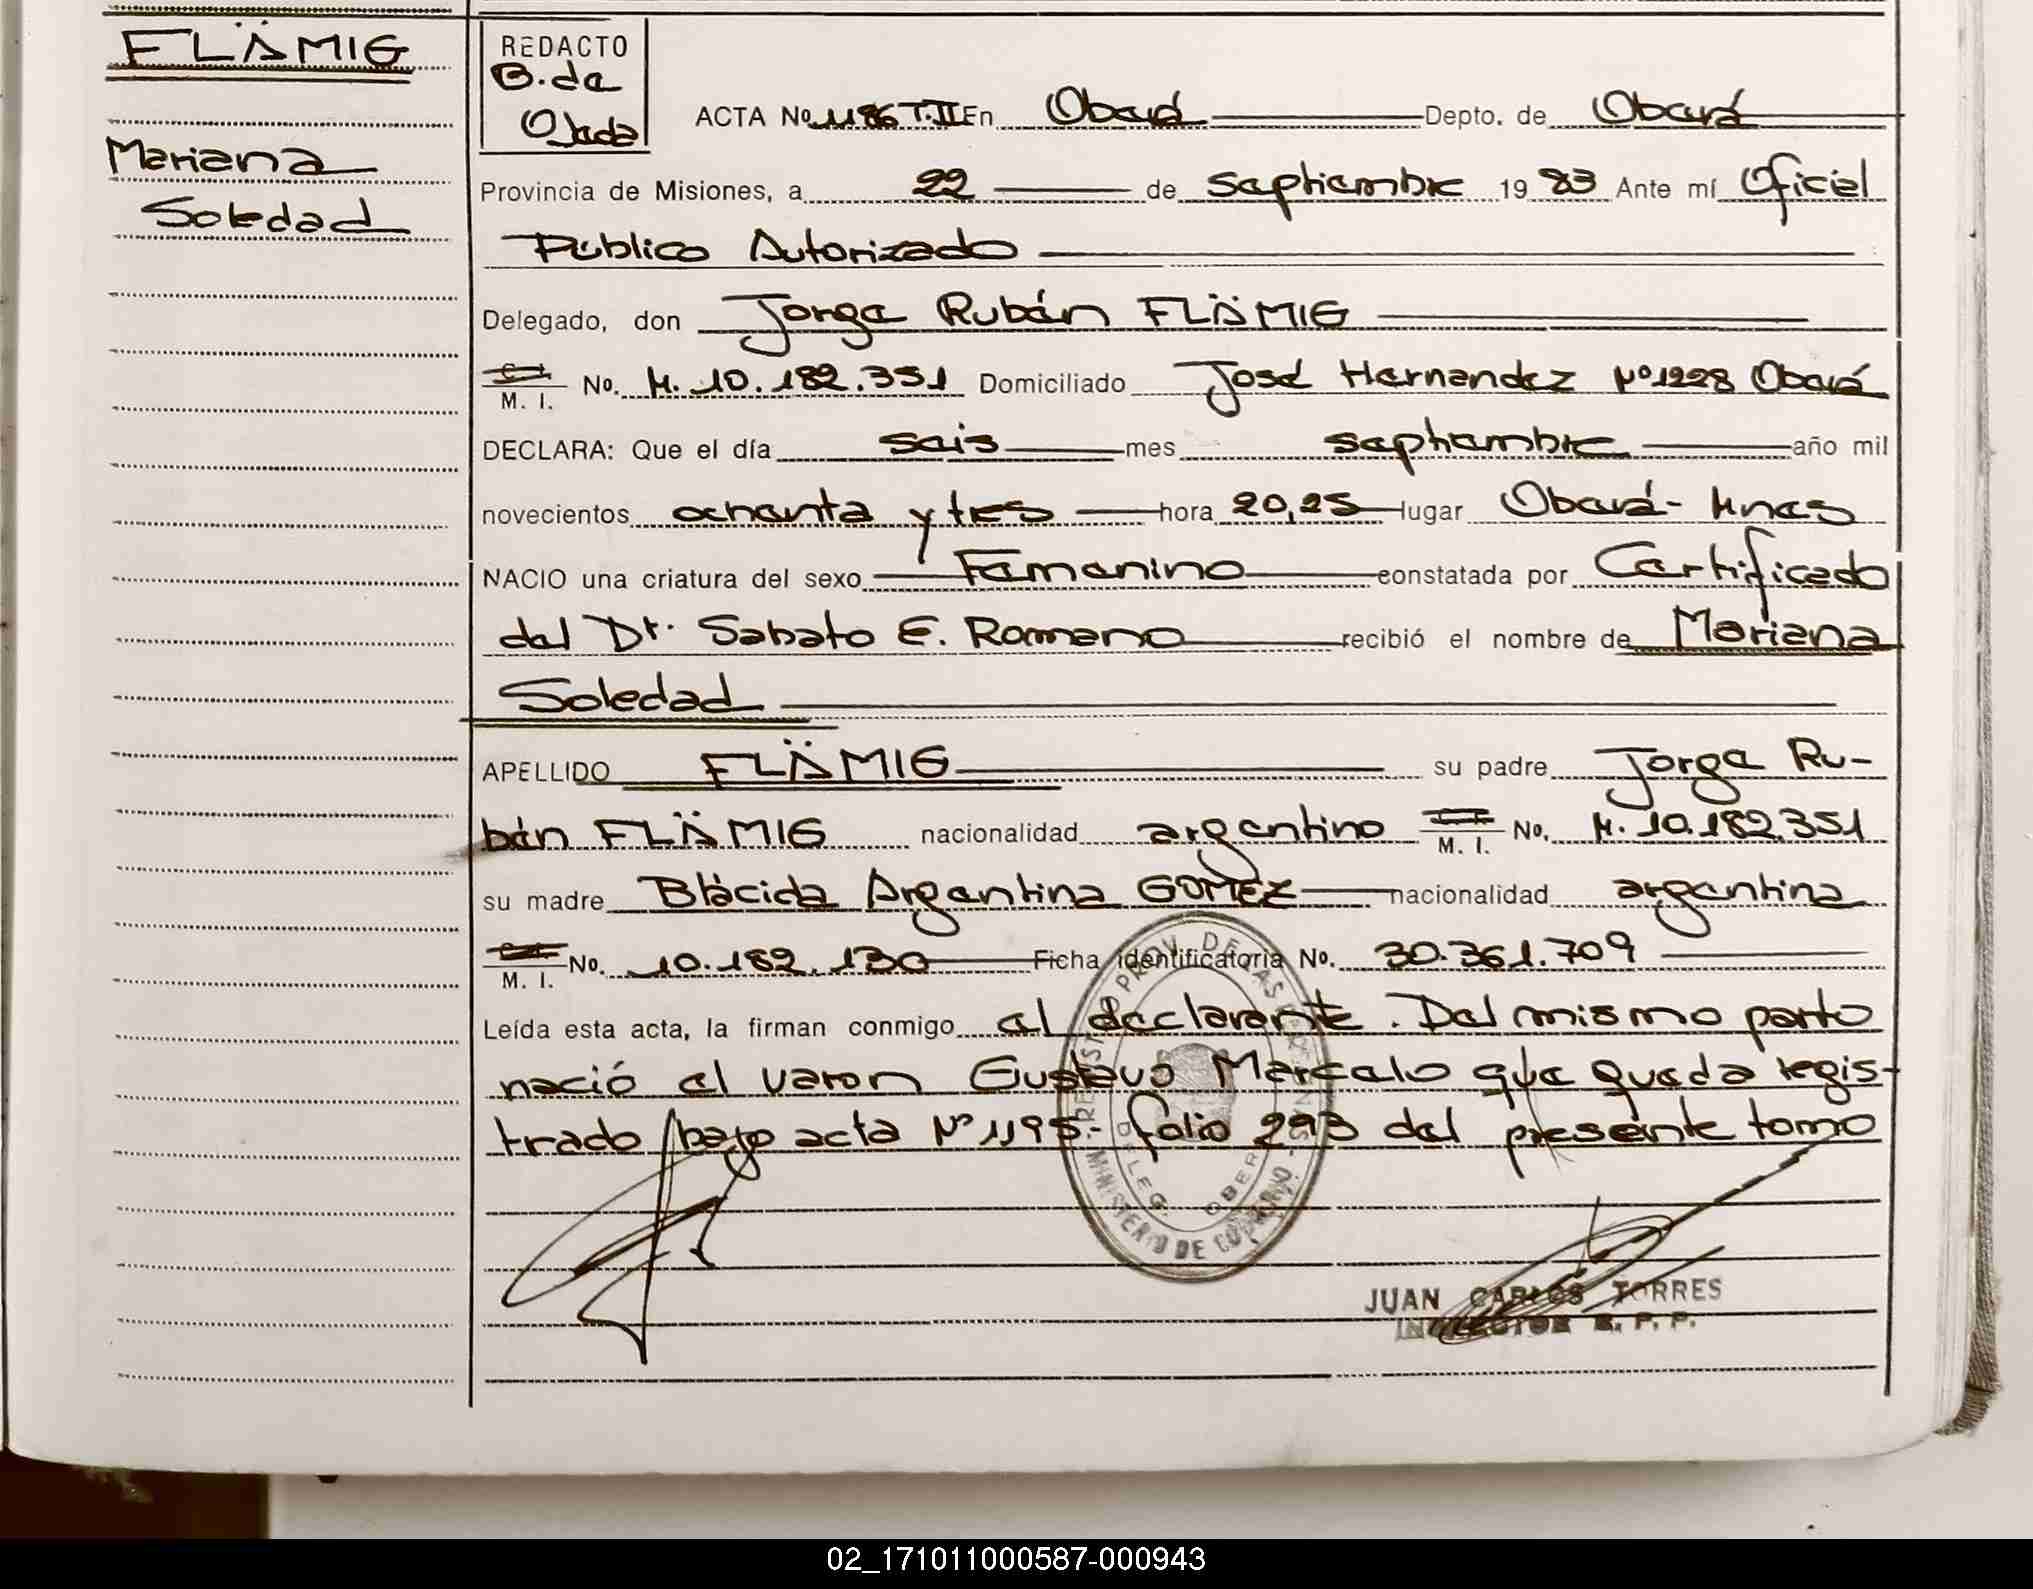 FLÄMIG
Mariana
Soledad
REDACTO
B. de
Ojeda
ACTA No. 1186 T.II En Oberá Depto. de Oberá
Provincia de Misiones, a 22 de septiembre 19 83 Ante mí Oficial
Público Autorizado
Delegado, don Jorge Rubén FLÄMIG
M. I. No. M. 10.182.351 Domiciliado José Hernandez Nº 1228 Oberá
DECLARA: Que el día seis mes septiembre año mil
novecientos ochenta y tres hora 20,25 lugar Oberá - Mnes
NACIO una criatura del sexo Femenino constatada por Certificado
del Dr. Sabato E. Romano recibió el nombre de Mariana
Soledad
APELLIDO FLÄMIG su padre Jorge Ru-
bén FLÄMIG nacionalidad argentino M. I. No. M. 10.182.351
su madre Blácida Argentina GOMEZ nacionalidad argentina
M. I. No. 10.182.130 Ficha identificatoria No. 30.361.709
Leída esta acta, la firman conmigo el declarante. Del mismo parto
nació el varon Gustavo Marcelo que queda regis-
trado bajo acta Nº 1195 - folio 293 del presente tomo
REGISTRO PROV. DE LAS PERSONAS
DELEG. OBERA
MINISTERIO DE GOBIERNO
JUAN CARLOS TORRES
INSPECTOR R. P. P.
02_171011000587-000943